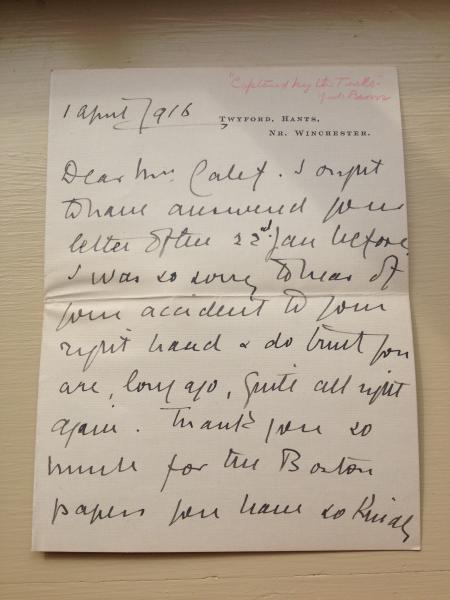 "Captured by the Turks"
1 April 1916
TWYFORD, HANTS,
NR. WINCHESTER.
Dear Mrs Calef. I ought
to have answered your
letter of the 22nd Jan before.
I was so sorry to hear of
your accident to your
right hand & do trust you
are, long ago, quite all right
again. Thank you so
much for the Boston
papers you have so kindly